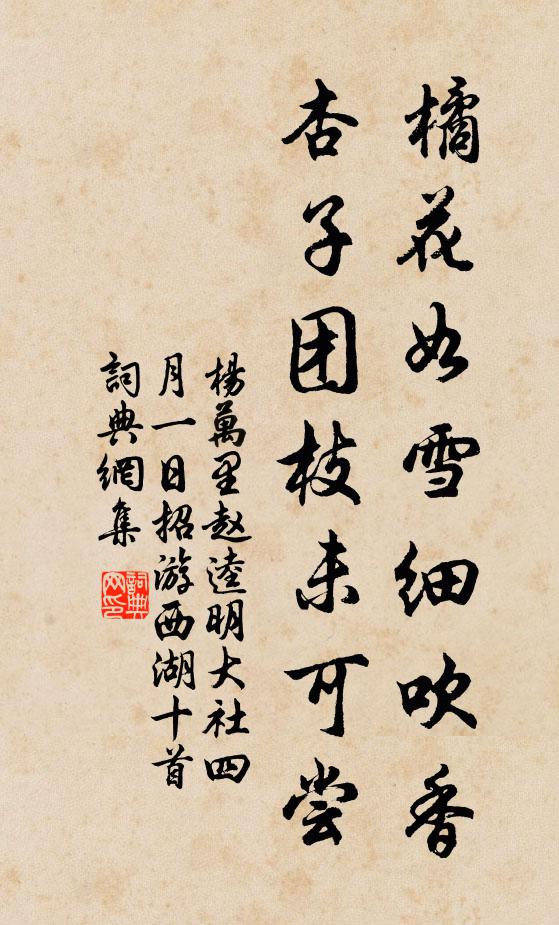 橘花如雪细吹香
杏子团枝未可尝
楊萬里赵逵明大社四
月一日招游西湖十首
詞典網集
詞典网印